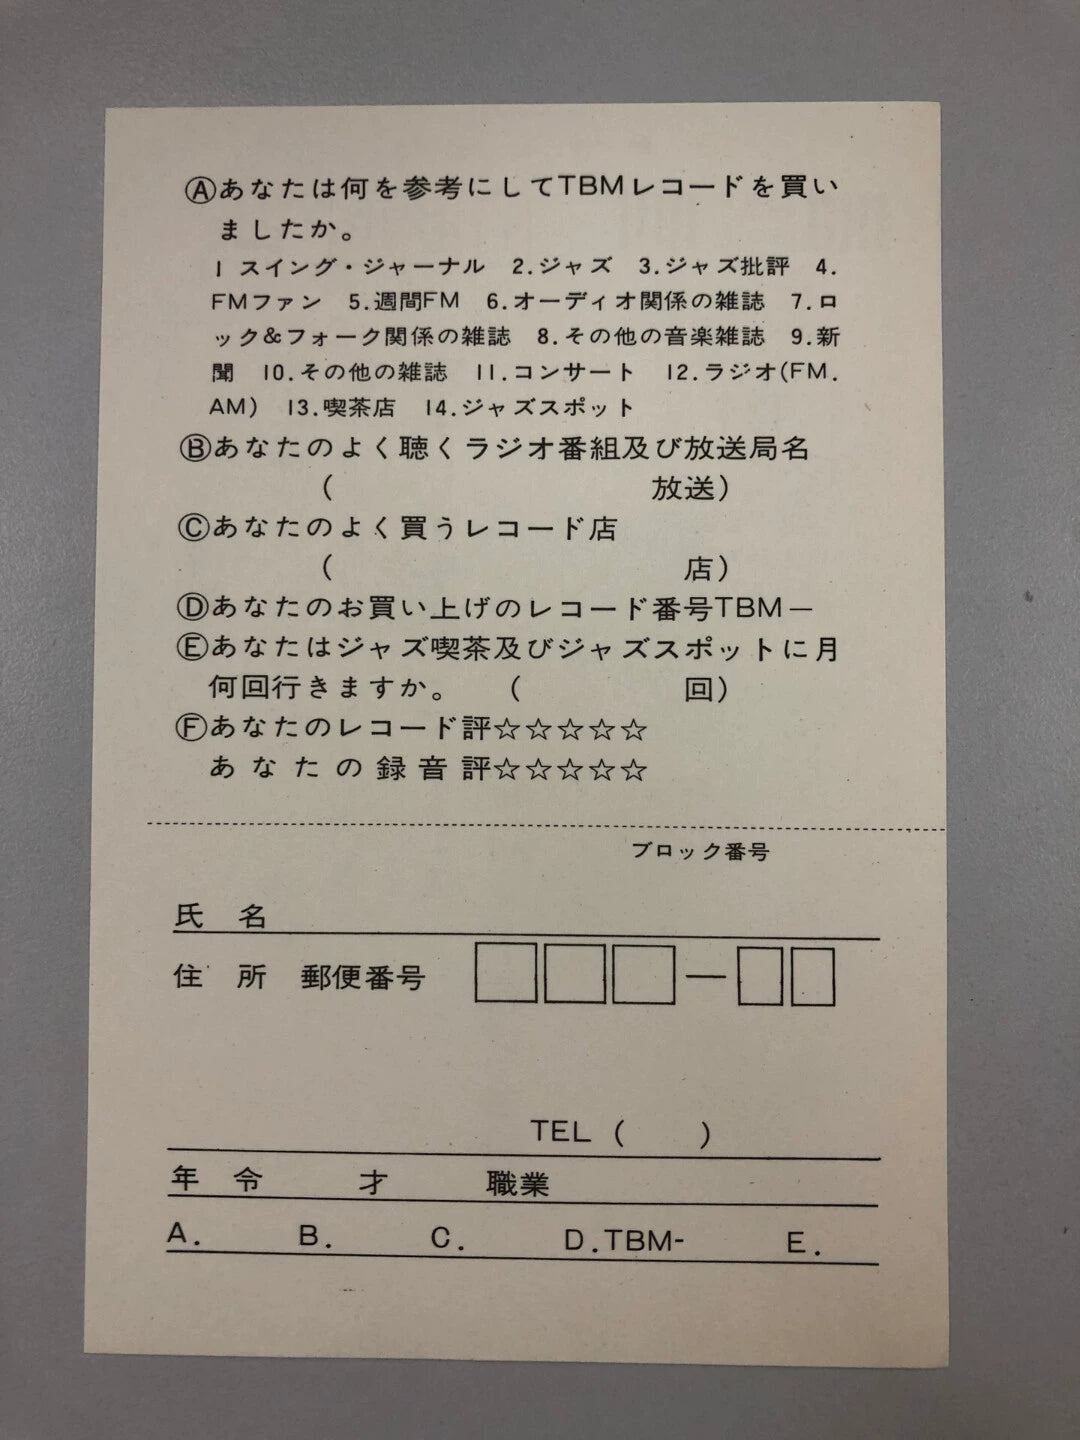 Ⓐあなたは何を参考にしてTBMレコードを買い
ましたか。
1 スイング・ジャーナル 2.ジャズ 3.ジャズ批評 4.
FMファン 5.週間FM 6.オーディオ関係の雑誌 7.ロ
ック&フォーク関係の雑誌 8.その他の音楽雑誌 9.新
聞 10.その他の雑誌 11.コンサート 12.ラジオ(FM.
AM) 13.喫茶店 14.ジャズスポット
Ⓑあなたのよく聴くラジオ番組及び放送局名
( 放送)
Ⓒあなたのよく買うレコード店
( 店)
Ⓓあなたのお買い上げのレコード番号TBM―
Ⓔあなたはジャズ喫茶及びジャズスポットに月
何回行きますか。 ( 回)
Ⓕあなたのレコード評☆☆☆☆☆
あなたの録音評☆☆☆☆☆
ブロック番号
氏 名
住 所 郵便番号 □□□―□□
TEL ( )
年 令 才 職業
A. B. C. D.TBM- E.